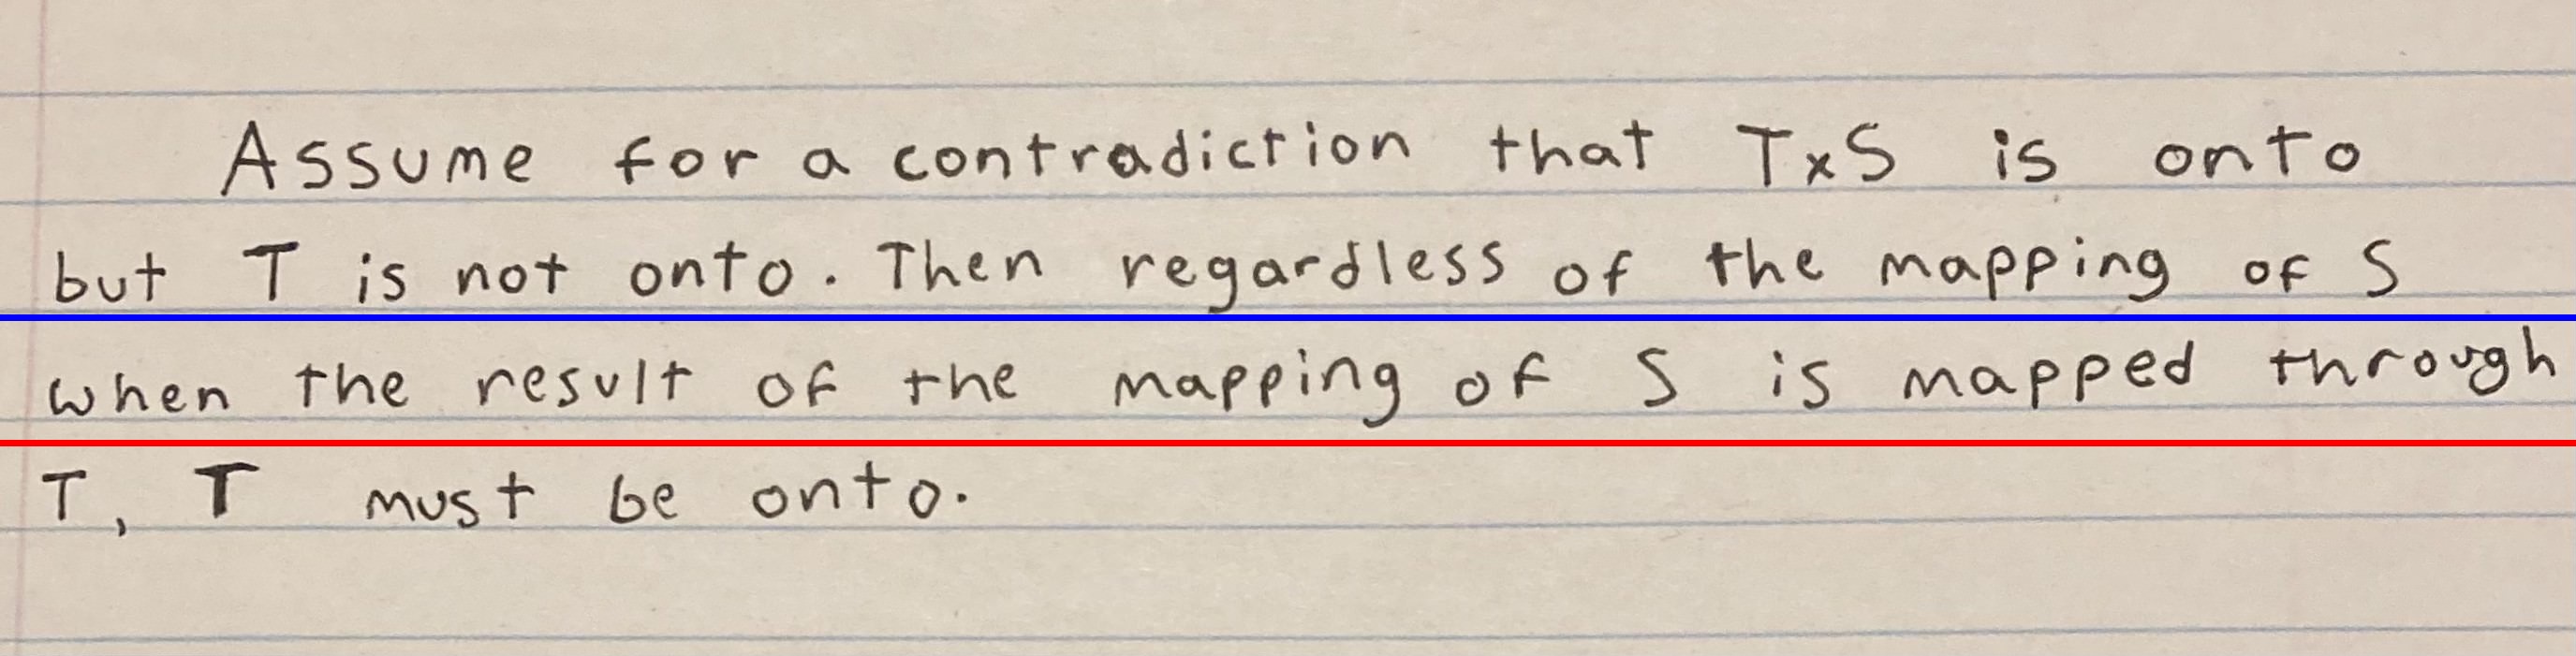 Assume for a contradiction that TxS is onto
but T is not onto. Then regardless of the mapping of S
when the result of the mapping of S is mapped through
T, T must be onto.